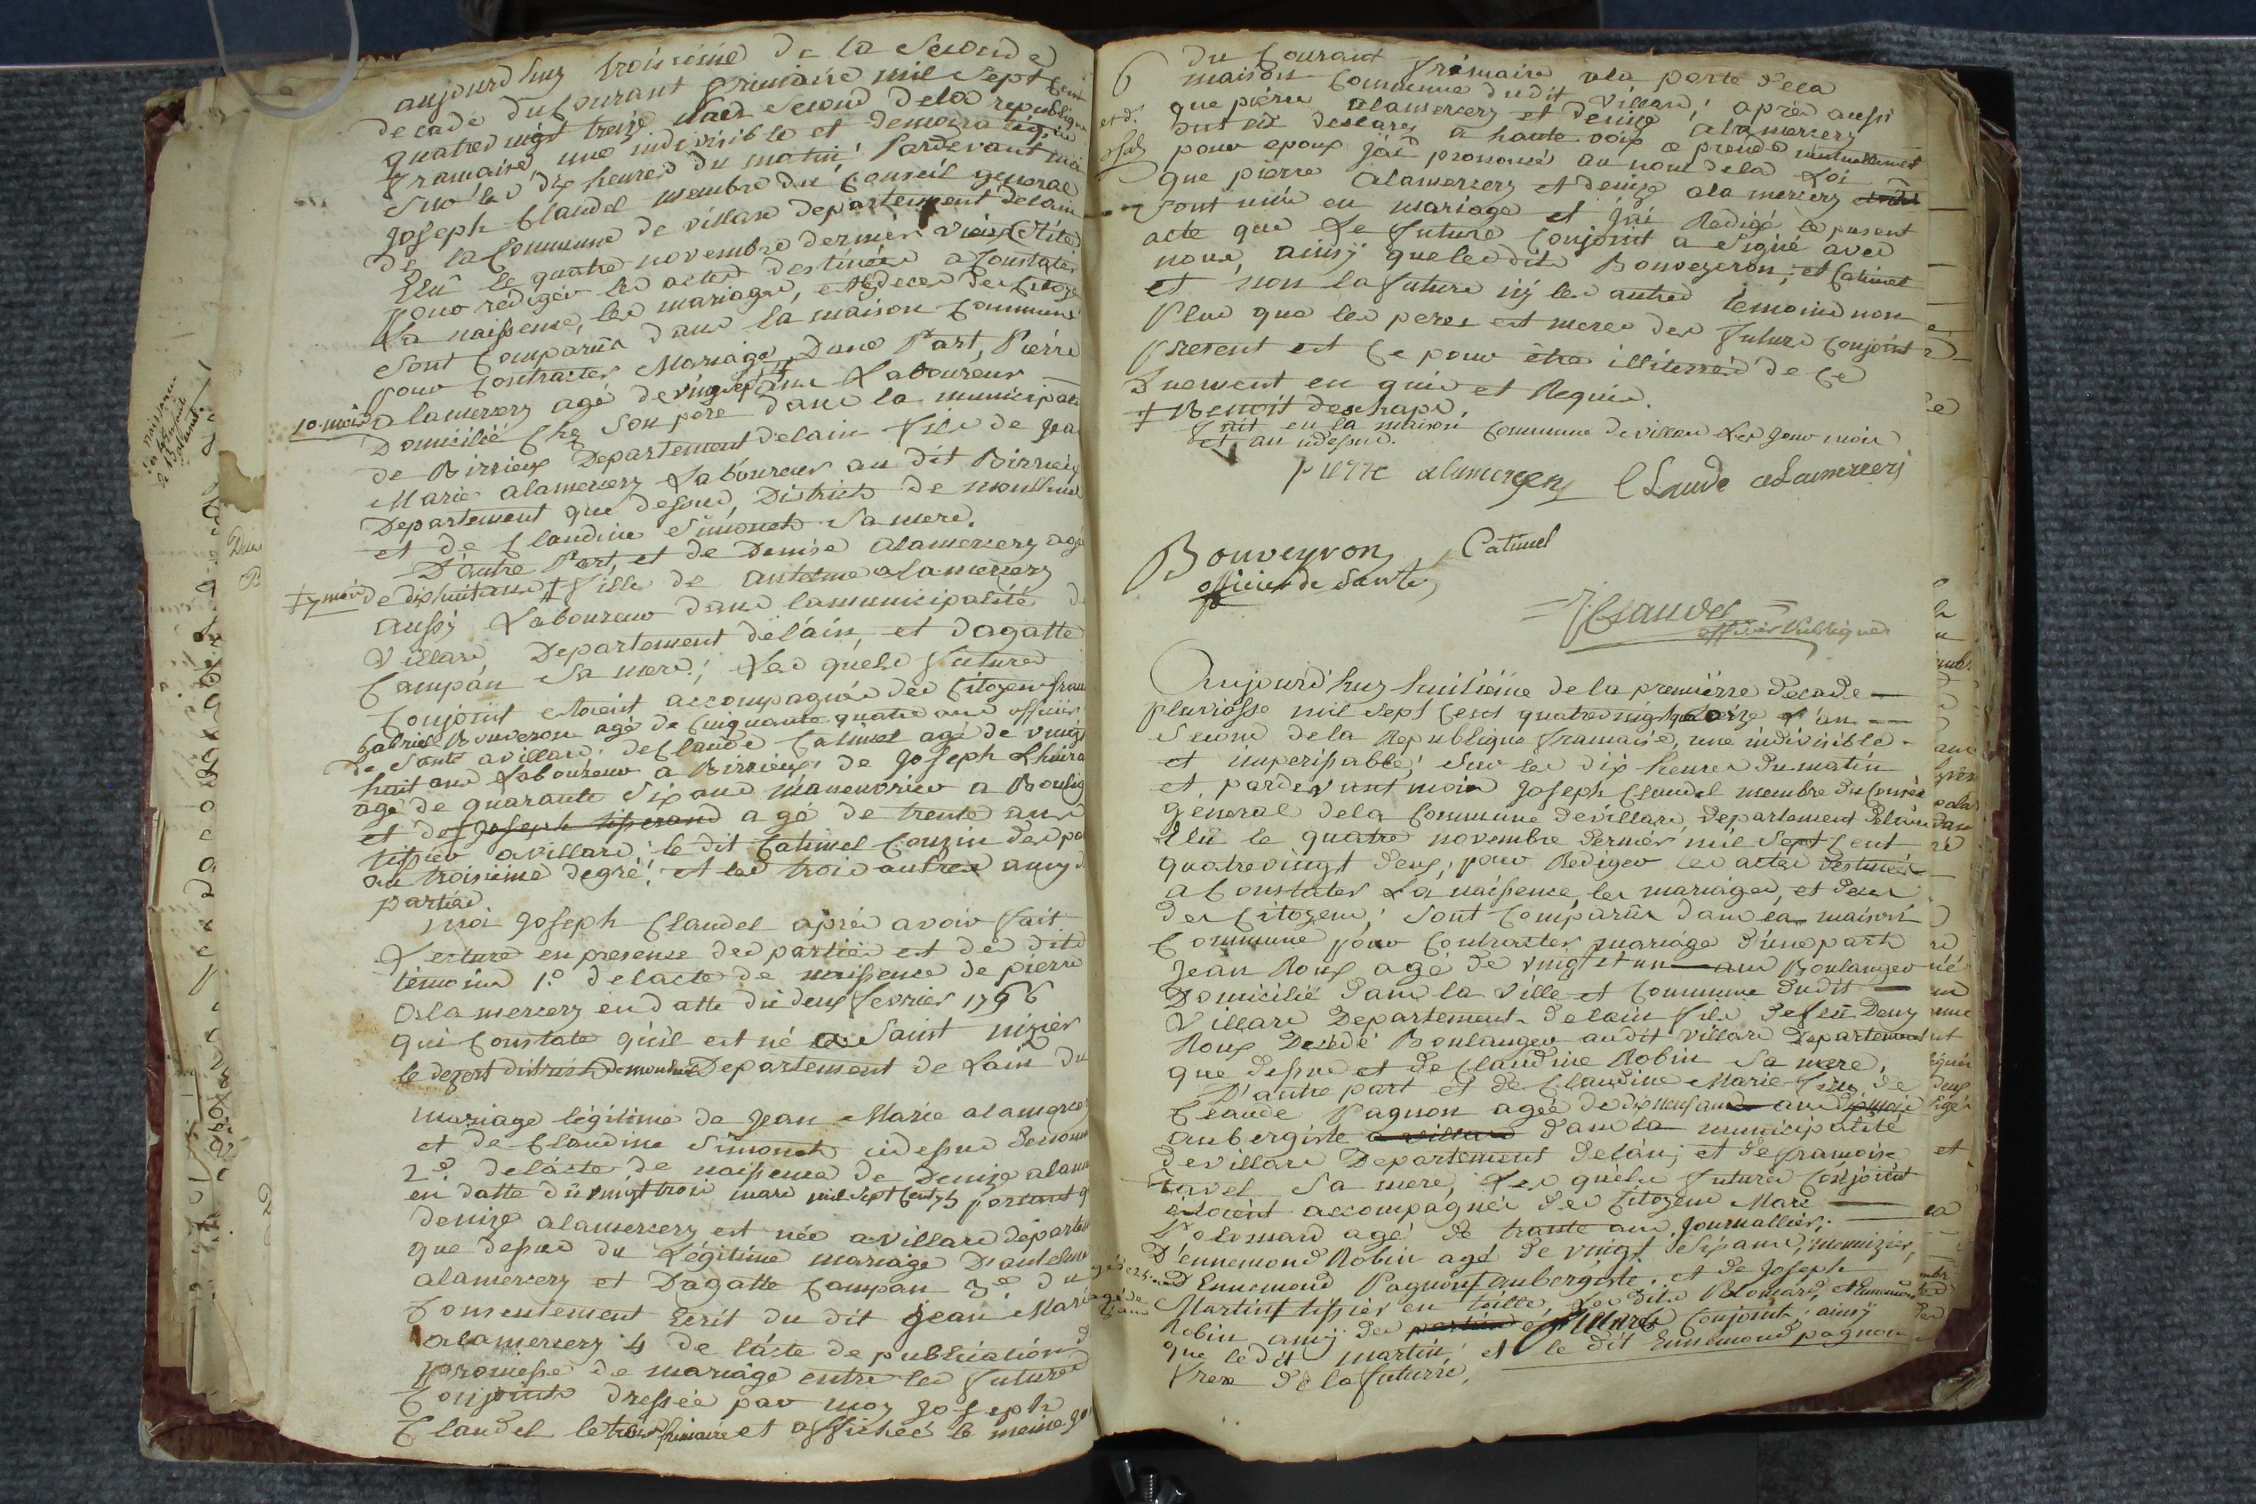 aujourdhuy troisieme de la Seconde
decade du Courant frimaire mil Sept Cent
quatrevingt treize Lan Second de la republique
francaise, une indivisible et democratique
Sur les dix heures du matin! Pardevant moi
Joseph Claudel membre du Conseil general
de la Commune de villars departement delain
Elû le quatre novembre dernier
pour rédiger les actes destinées a Constater
La naissence, les mariages, et decès des Citoyens
Sont Comparûs dans la maison Commune
pour Contracter Mariage, Dune Part, Pierre
10 mois
alamercery agé de vingt sept ans Laboureur
Domicilié Chez Son pere dans la municipalité
de Birrieux Departement delain fils de Jean
Marie alamercery Laboureur au dit Birrieux
Departement que dessus, District de montluel
et de Claudine Simonet Sa mere.
D'autre Part, et de Denise alamercery agée
‡ 7 mois
de dix huit ans ‡ fille de antelme alamercery
aussÿ Laboureur dans la municipalité de
Villars, Departement de l'ain, et dagatte
Campan Sa mere; Les quels futures
Conjoint etoient accompagnés des Citoyens
Gabriel Bouveron agé de Cinquante quatre ans officier
de Santé a villars; de Claude Catimel agé de vingt
huit ans Laboureur a Birrieux; de Joseph
agé de quarante Six ans manouvrier a Boulig
et de Joseph tisserand agé de trente ans
tissier a villars; le dit Catimel Couzin des
au troisieme degré! et les trois autres amy
parties
moi Joseph Claudel après avoir fait
Lecture en presence des parties et de dits
temoins 1.º de lacte de naissence de pierre
alamercery en datte du deux fevrier 1766
qui Constate qu'il est né a Saint nizier
le dezert district de montluel Departement de Lain du
mariage légitime de Jean Marie alamercery
et de Claudine Simonet cidessus denommé
2.º de lacte de naissence de Denize
en datte du vingt trois mars mil Sept Cent 75 portant
denize alamercery est née a villars
que dessus du Légitime mariage D'antelme
alamercery et Dagatte Campan 3.º du
Consentement Ecrit du dit Jean Marie
alamercery 4 de l'acte de publication
promesse de mariage entre les futures
Conjoints dressée par moy Joseph
Claudel le trois frimaire et affichée le meme
6 du Courant frimaire a la porte de la
maison Commune dudit Villars; après aussi
que pierre alamercery et denize alamercery
ont eû declarez a haute voix a prendre mutuellement
pour epoux J'ai prononcé au nom de la Loi
que pierre alamercery et denize alamercery
sont unis en mariage et J'ai Redigé le present
acte que Le future Conjoint a Signé avec
nous, ainsÿ que les dits Bouveyeron, et Catimel
et non la future nÿ les autres temoins non
Plus que les peres et meres des futurs Conjoint
present et Ce pour être illiterré de Ce
duement en quis et Requis.
‡ Benoit deschaps.
fait en la maison Commune de villars Les jour mois
et an cidessus.
pierre alamercery Claude alamercery
Bouveyron Catimel
officier de Santé
J. Claudel
officier Publique
Aujourd'huy huitième de la premièrre decade
pluviôsse mil Sept Cent quatrevingt quatorze L'an
Second de la Republique francaise, une indivisible
et imperissable; Sur les dix heures du matin
et pardevant moi Joseph Claudel membre du Conseil
general de la Commune de villars, departement delain
Elû le quatre novembre dernier mil Sept Cent
quatrevingt deux, pour Rediger les actes destinés
a Constater La naissence, les mariages, et deces
des Citoyens; Sont Comparûs dans la maison
Commune pour Contracter mariage d'une part
Jean Roux agé de vingt et un ans Boulanger
Domicilié dans la Ville et Commune dudit
Villars Departement de lain fils de feû Deny
Roux Decédé Boulanger audit villars Departement
que dessus et de Claudine Robin Sa mere.
D'autre part et de Claudine Marie fille de
Claude Pagnon agée de dix neuf ans
aubergiste a villars dans la municipalité
de villars Departement de lain; et de francoise
tavel Sa mere, Les quéls futures Conjoint
étoient accompagnés des Citoyens Marc
Polomard agé de trante ans Journallier;
D'ennemond Robin agé de vingt Six ans, menuizier,
D'Ennemond Pagnon aubergiste, et de Joseph
Martin tissier en toille, Les dits Polomard, et Ennemond
Robin amÿ des parties et futurs Conjoint; ainsÿ
que le dit martin; et le dit Ennemond pagnon
frere de la future.